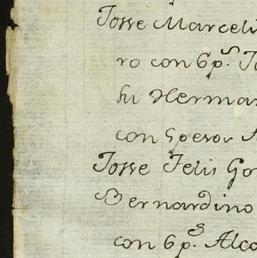 Josse Marceli
ro con 6 p.s
su Herman
con 5 pesos
Josse Felis Go
Bernardino
con 6 p.s Alca